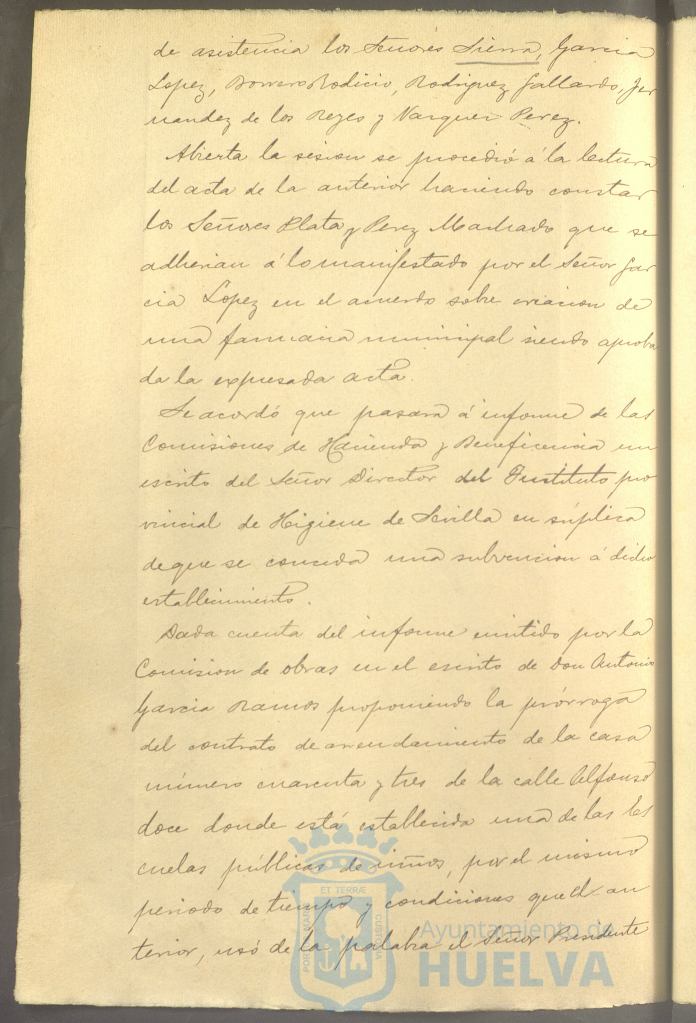 de asistencia los Señores Sierra, Garcia
Lopez, Borrero Rodicio, Rodriguez Gallardo, Fer
nandez de los Reyes y Vazquez Perez.
Abierta la sesion se procedió á la lectura
del acta de la anterior haciendo constar
los Señores Plata y Perez Machado que se
adherian á lo manifestado por el Señor Gar
cia Lopez en el acuerdo sobre creacion de
una farmacia municipal siendo aproba
da la expresada acta.
Se acordó que pasara á informe de las
Comisiones de Hacienda y Beneficencia un
escrito del Señor Director del Instituto pro
vincial de Higiene de Sevilla en súplica
de que se conceda una subvencion á dicho
establecimiento.
Dada cuenta del informe emitido por la
Comision de obras en el escrito de Don Antonio
Garcia Ramos proponiendo la prórroga
del contrato de arrendamiento de la casa
número cuarenta y tres de la calle Alfonso
doce donde está establecida una de las Es
cuelas públicas de niños, por el mismo
periodo de tiempo y condiciones que el an
terior, usó de la palabra el Señor Presidente
ET TERRÆ
PORTUS MARIS
CUSTODIA
Ayuntamiento de
HUELVA